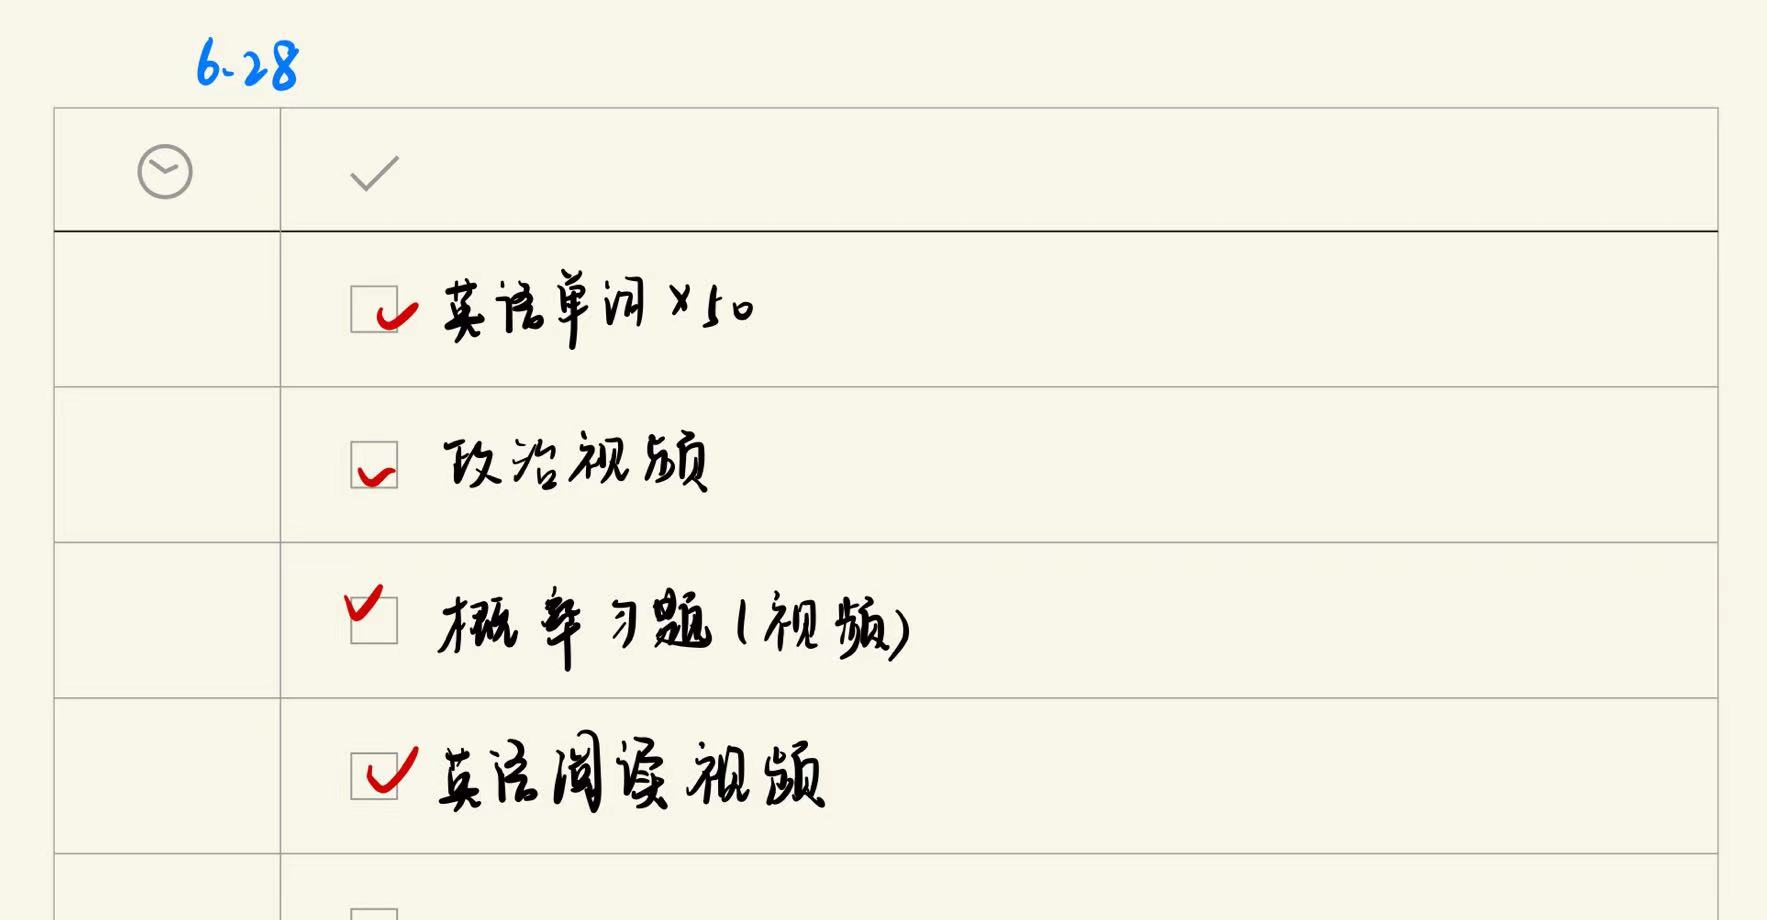 6.28
英语单词×50
政治视频
概率习题(视频)
英语阅读视频